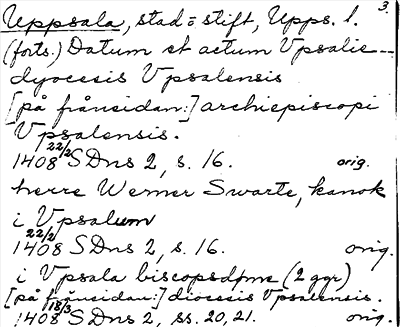 3.
Uppsala, stad= stift, Upps. l.
(forts.) Datum et actum Vpsalie --
dyocesis Vpsalensis
[på frånsidan:] archiepiscopi
Vpsalensis.
1408 22/2 SDns 2, s. 16. orig.
herre Werner Swarte, kanok
i Vpsalum
1408 22/2 SDns 2, s. 16. orig.
i Vpsala biscopsdøme (2 ggr)
[på frånsidan:] diocesis Vpsalensis.
1408 18/3 SDns 2, ss. 20, 21. orig.